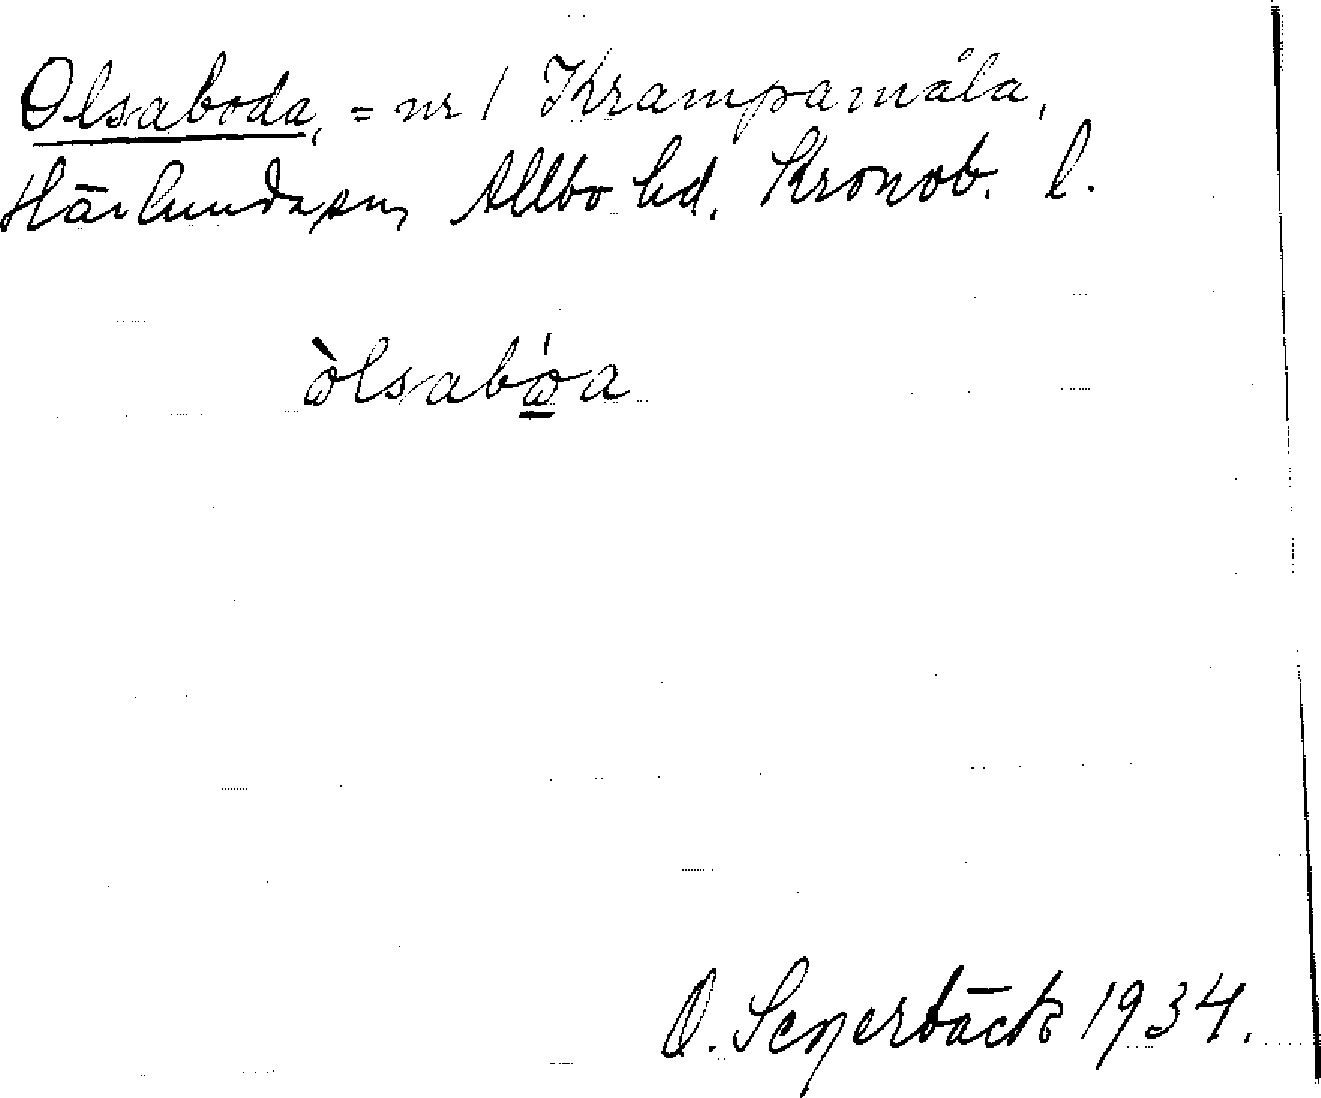 Olsaboda, = nr 1 Krampamåla,
Härlunda sn, Allbo hd, Kronob. l.
òlsabóa
O. Segerbäck 1934.